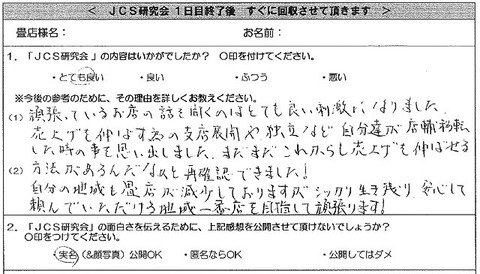 ＜ JCS研究会 1日目終了後 すぐに回収させて頂きます ＞
畳店様名： お名前：
1．「JCS研究会」の内容はいかがでしたか？ ○印を付けてください。
・とても良い ・良い ・ふつう ・悪い
※今後の参考のために、その理由を詳しくお教えください。
(1) 頑張っているお店の話を聞くのはとても良い刺激になりました。
売上げを伸ばす為の支店展開や独立など自分達が店舗移転
した時の事を思い出しました。まだまだこれからも売上げを伸ばせる
(2) 方法があるんだなぁと再確認できました！
自分の地域も畳店が減少しておりますがシッカリ生き残り安心して
頼んでいただける地域一番店を目指して頑張ります！
2．「JCS研究会」の面白さを伝えるために、上記感想を公開させて頂けないでしょうか？
○印をつけてください。
・実名（&顔写真）公開OK ・匿名ならOK ・公開してはダメ